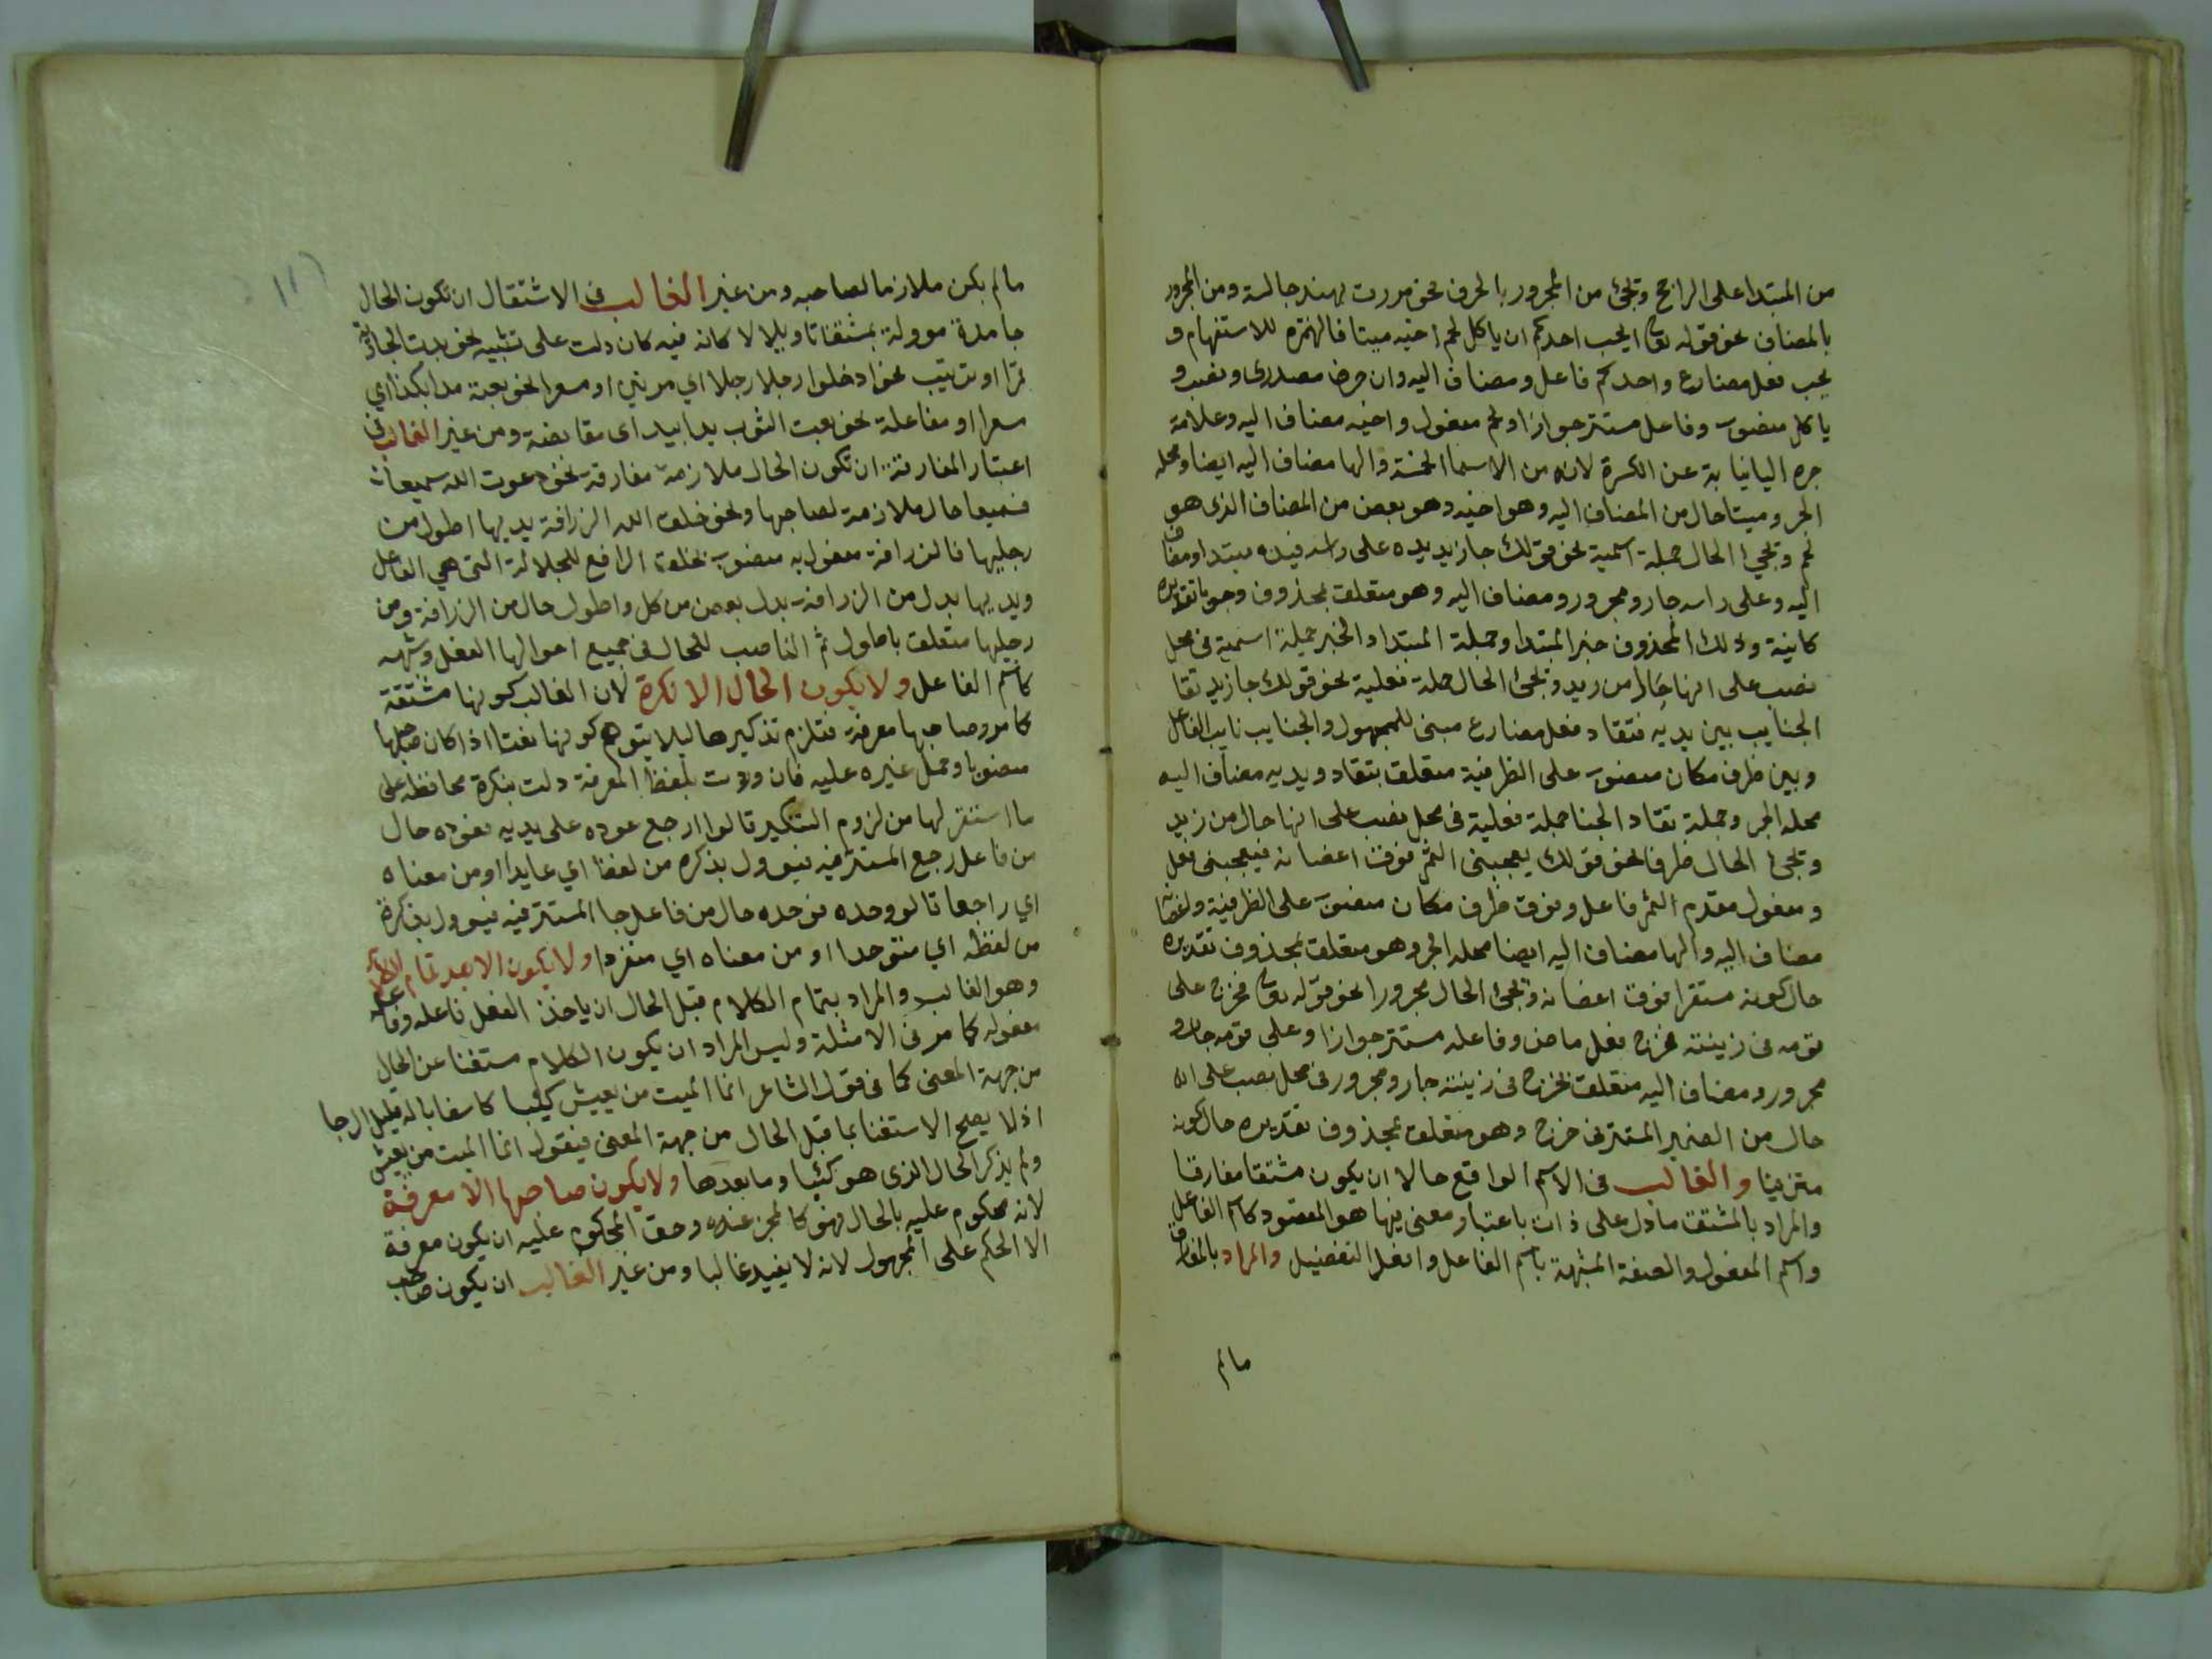 من المبتدا على الراجح وتجئ من المجرور بالحرف نحو مررت بهند جالسة ومن المجرور
بالمضاف نحو قوله تعالى ايحب احدكم ان ياكل لحم اخيه ميتا فالهمزة للاستفهام و
يحب فعل مضارع واحدكم فاعل ومضاف اليه وان حرف مصدرى ونصب و
ياكل منصوب وفاعل مستتر جوازا ولحم مفعول واخيه مضاف اليه وعلامة
جره اليا نيابة عن الكسرة لانه من الاسما الخمسة والها مضاف اليه ايضا ومحله
الجر وميتا حال من المضاف اليه وهو اخيه وهو بعض من المضاف الذى هو
لحم وتجئ الحال جملة اسمية نحو قولك جا زيد يده على راسه فيده مبتدا ومضاف
اليه وعلى راسه جار ومجرور ومضاف اليه وهو متعلق بمحذوف وجوبا تقديره
كاينة وذلك المحذوف خبر المبتدا وجملة المبتدا والخبر جملة اسمية فى محل
نصب على انها حال من زيد وتجئ الحال جملة فعلية نحو قولك جا زيد تقاد
الجنايب بين يديه فتقاد فعل مضارع مبنى للمجهول والجنايب نايب الفاعل
وبين ظرف مكان منصوب على الظرفية متعلق بتقاد ويديه مضاف اليه
محله الجر وجملة تقاد الجنا جملة فعلية فى محل نصب على انها حال من زيد
وتجئ الحال ظرفا نحو قولك يعجبنى الثمر فوق اغصانه فيعجبنى فعل
ومفعول مقدم الثمر فاعل وفوق ظرف مكان منصوب على الظرفية واغصانه
مضاف اليه والها مضاف اليه ايضا محله الجر وهو متعلق بمحذوف تقديره
حال كونه مستقرا فوق اغصانه وتجئ الحال مجرورا نحو قوله تعالى فخرج على
قومه فى زينته فخرج فعل ماض وفاعله مستتر جوازا وعلى قومه جار و
مجرور ومضاف اليه متعلق بخرج فى زينته جار ومجرور فى محل نصب على انه
حال من الضمير المستتر فى خرج وهو متعلق بمحذوف تقديره حال كونه
متزينا والغالب فى الاسم الواقع حالا ان يكون مشتقا مفارقا
والمراد بالمشتق ما دل على ذات باعتبار معنى فيها هو المقصود كاسم الفاعل
واسم المفعول والصفة المشبهة باسم الفاعل وافعل التفضيل والمراد بالمفارق
مالم
مالم يكن ملازما لصاحبه ومن غير الغالب فى الاشتقاق ان تكون الحال
جامدة موولة بمشتق تاويلا لا كانه فيه كان دلت على تشبيه نحو بدت الجارية
قمرا او ترتيب نحو ادخلوا رجلا رجلا اي مرتبين او سعرا نحو بعته مدا بكذا اي
مسعرا او مفاعلة نحو بعت الثوب يدا بيد اى مقابضة ومن غير الغالب فى
اعتبار المفارقة ان تكون الحال ملازمة مفارقة نحو دعوت الله سميعا
فسميعا حال ملازمة لصاحبها ونحو خلق الله الزرافة يديها اطول من
رجليها فالزرافة مفعول به منصوب بخلق الرافع للجلالة التى هى الفاعل
ويديها بدل من الزرافة بدل بعض من كل واطول حال من الزرافة ومن
رجليها متعلق باطول ثم الناصب للحال فى جميع احوالها الفعل وشبهه
كاسم الفاعل ولا يكون الحال الا نكرة لان الغالب كونها مشتقة
كما مر وصاحبها معرفة فتلزم تنكيرها ليلا يتوهم كونها نعتا اذا كان صاحبها
منصوبا وحمل غيره عليه فان وردت بلفظ المعرفة دلت بنكرة محافظة على
ما استقر لها من لزوم التنكير قالوا ارجع عوده على يديه فعوده حال
من فاعل رجع المستتر فيه فيوول بنكرة من لفظ اي عايدا او من معناه
اي راجعا قالو وحده فوحده حال من فاعل جا المستتر فيه فيوول بنكرة
من لفظه اي متوحدا او من معناه اي منفردا ولا يكون الا بعد تمام الكلام
وهو الغالب والمراد بتمام الكلام قبل الحال ان ياخذ الفعل فاعله وفاعله
مفعوله كما مر فى الامثلة وليس المراد ان يكون الكلام مستغنا عن الحال
من جهة المعنى كما فى قول الشاعر انما الميت من يعيش كئيبا كاسفا باله قليل الرجا
اذ لا يصح الاستغنا بما قبل الحال من جهة المعنى فيقول انما الميت من يعيش
ولم يذكر الحال الذى هو كئيبا وما بعدها ولا يكون صاحبها الا معرفة
لانه محكوم عليه بالحال فهو كالمخبر عنه وحق المحكوم عليه ان يكون معرفة
الا الحكم على المجهول لانه لا يفيد غالبا ومن غير الغالب ان يكون صاحب